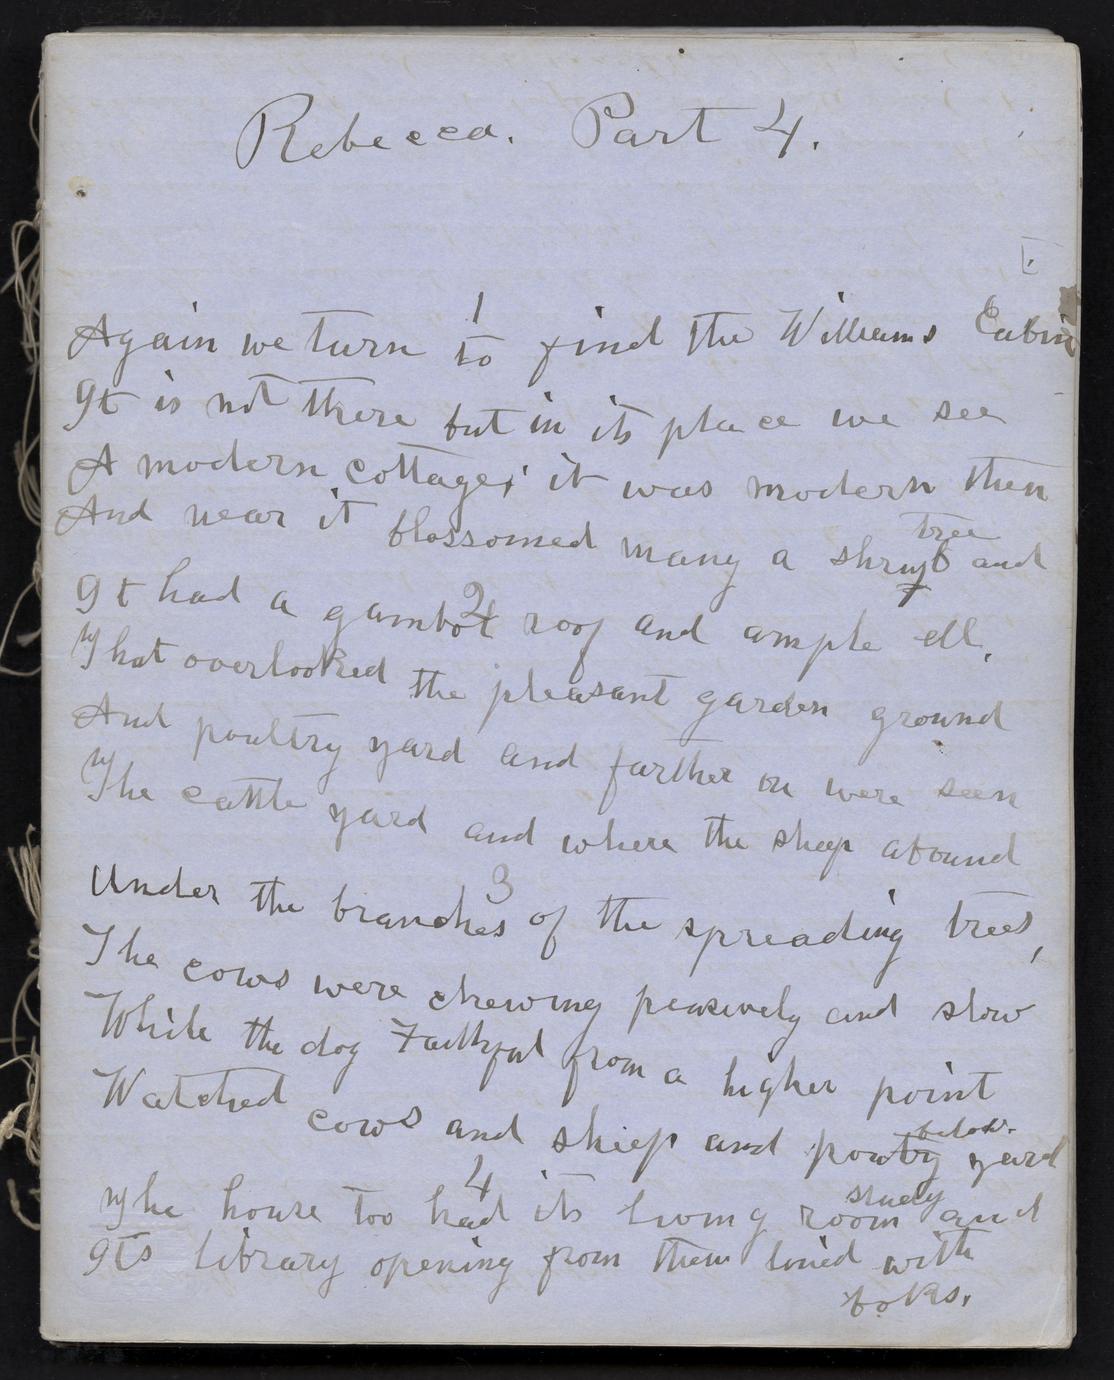 Rebecca. Part 4.
1
Again we turn to find the Williams Cabin
It is not there but in its place we see
A modern cottage; it was modern then
And near it blossomed many a shrub and
tree
2
It had a gambol roof and ample ell,
That overlooked the pleasant garden ground
And poultry yard and farther on were seen
The cattle yard and where the sheep abound
3
Under the branches of the spreading trees,
The cows were chewing pensively and slow
While the dog Faithful from a higher point
Watched cows and sheep and poultry yard
below.
4
The house too had its living room and
study
Its library opening from them lined with
boks.